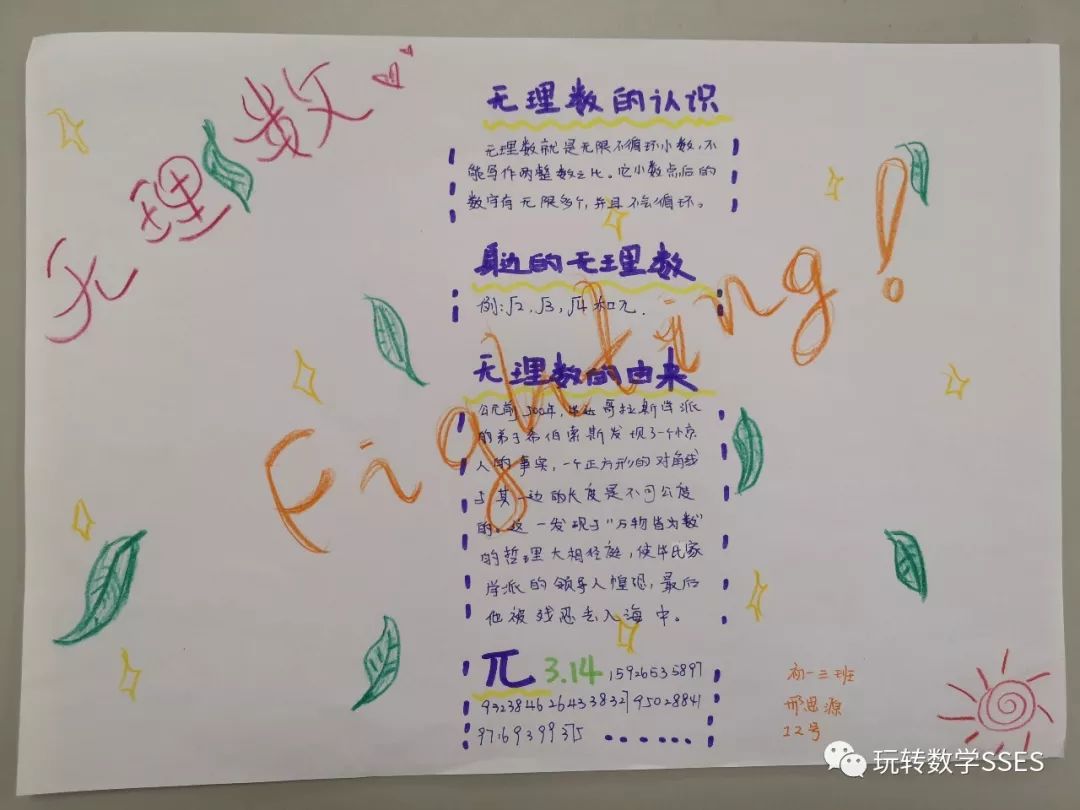 无理数
无理数的认识
无理数就是无限不循环小数,不
能写作两整数之比。它小数点后的
数字有无限多个,并且不会循环。
身边的无理数
例:√2,√3,√4和π.
无理数的由来
公元前500年,毕达哥拉斯学派
的弟子希伯索斯发现了一个惊
人的事实,一个正方形的对角线
与其一边的长度是不可公度
的。这一发现与“万物皆为数”
的哲理大相径庭,使毕氏家
学派的领导人惶恐,最后
他被残忍丢入海中。
Fighting!
π 3.14 15926535897
93238462643383279 5028841
97169399375 ......
初一三班
邢思源
12号
玩转数学SSES